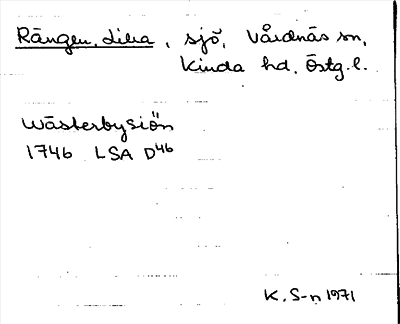 Rängen, Lilla, sjö, Vårdnäs sn,
Kinda hd, Östg. l.
Wästerbysiön
1746 LSA D46
K. S-n 1971